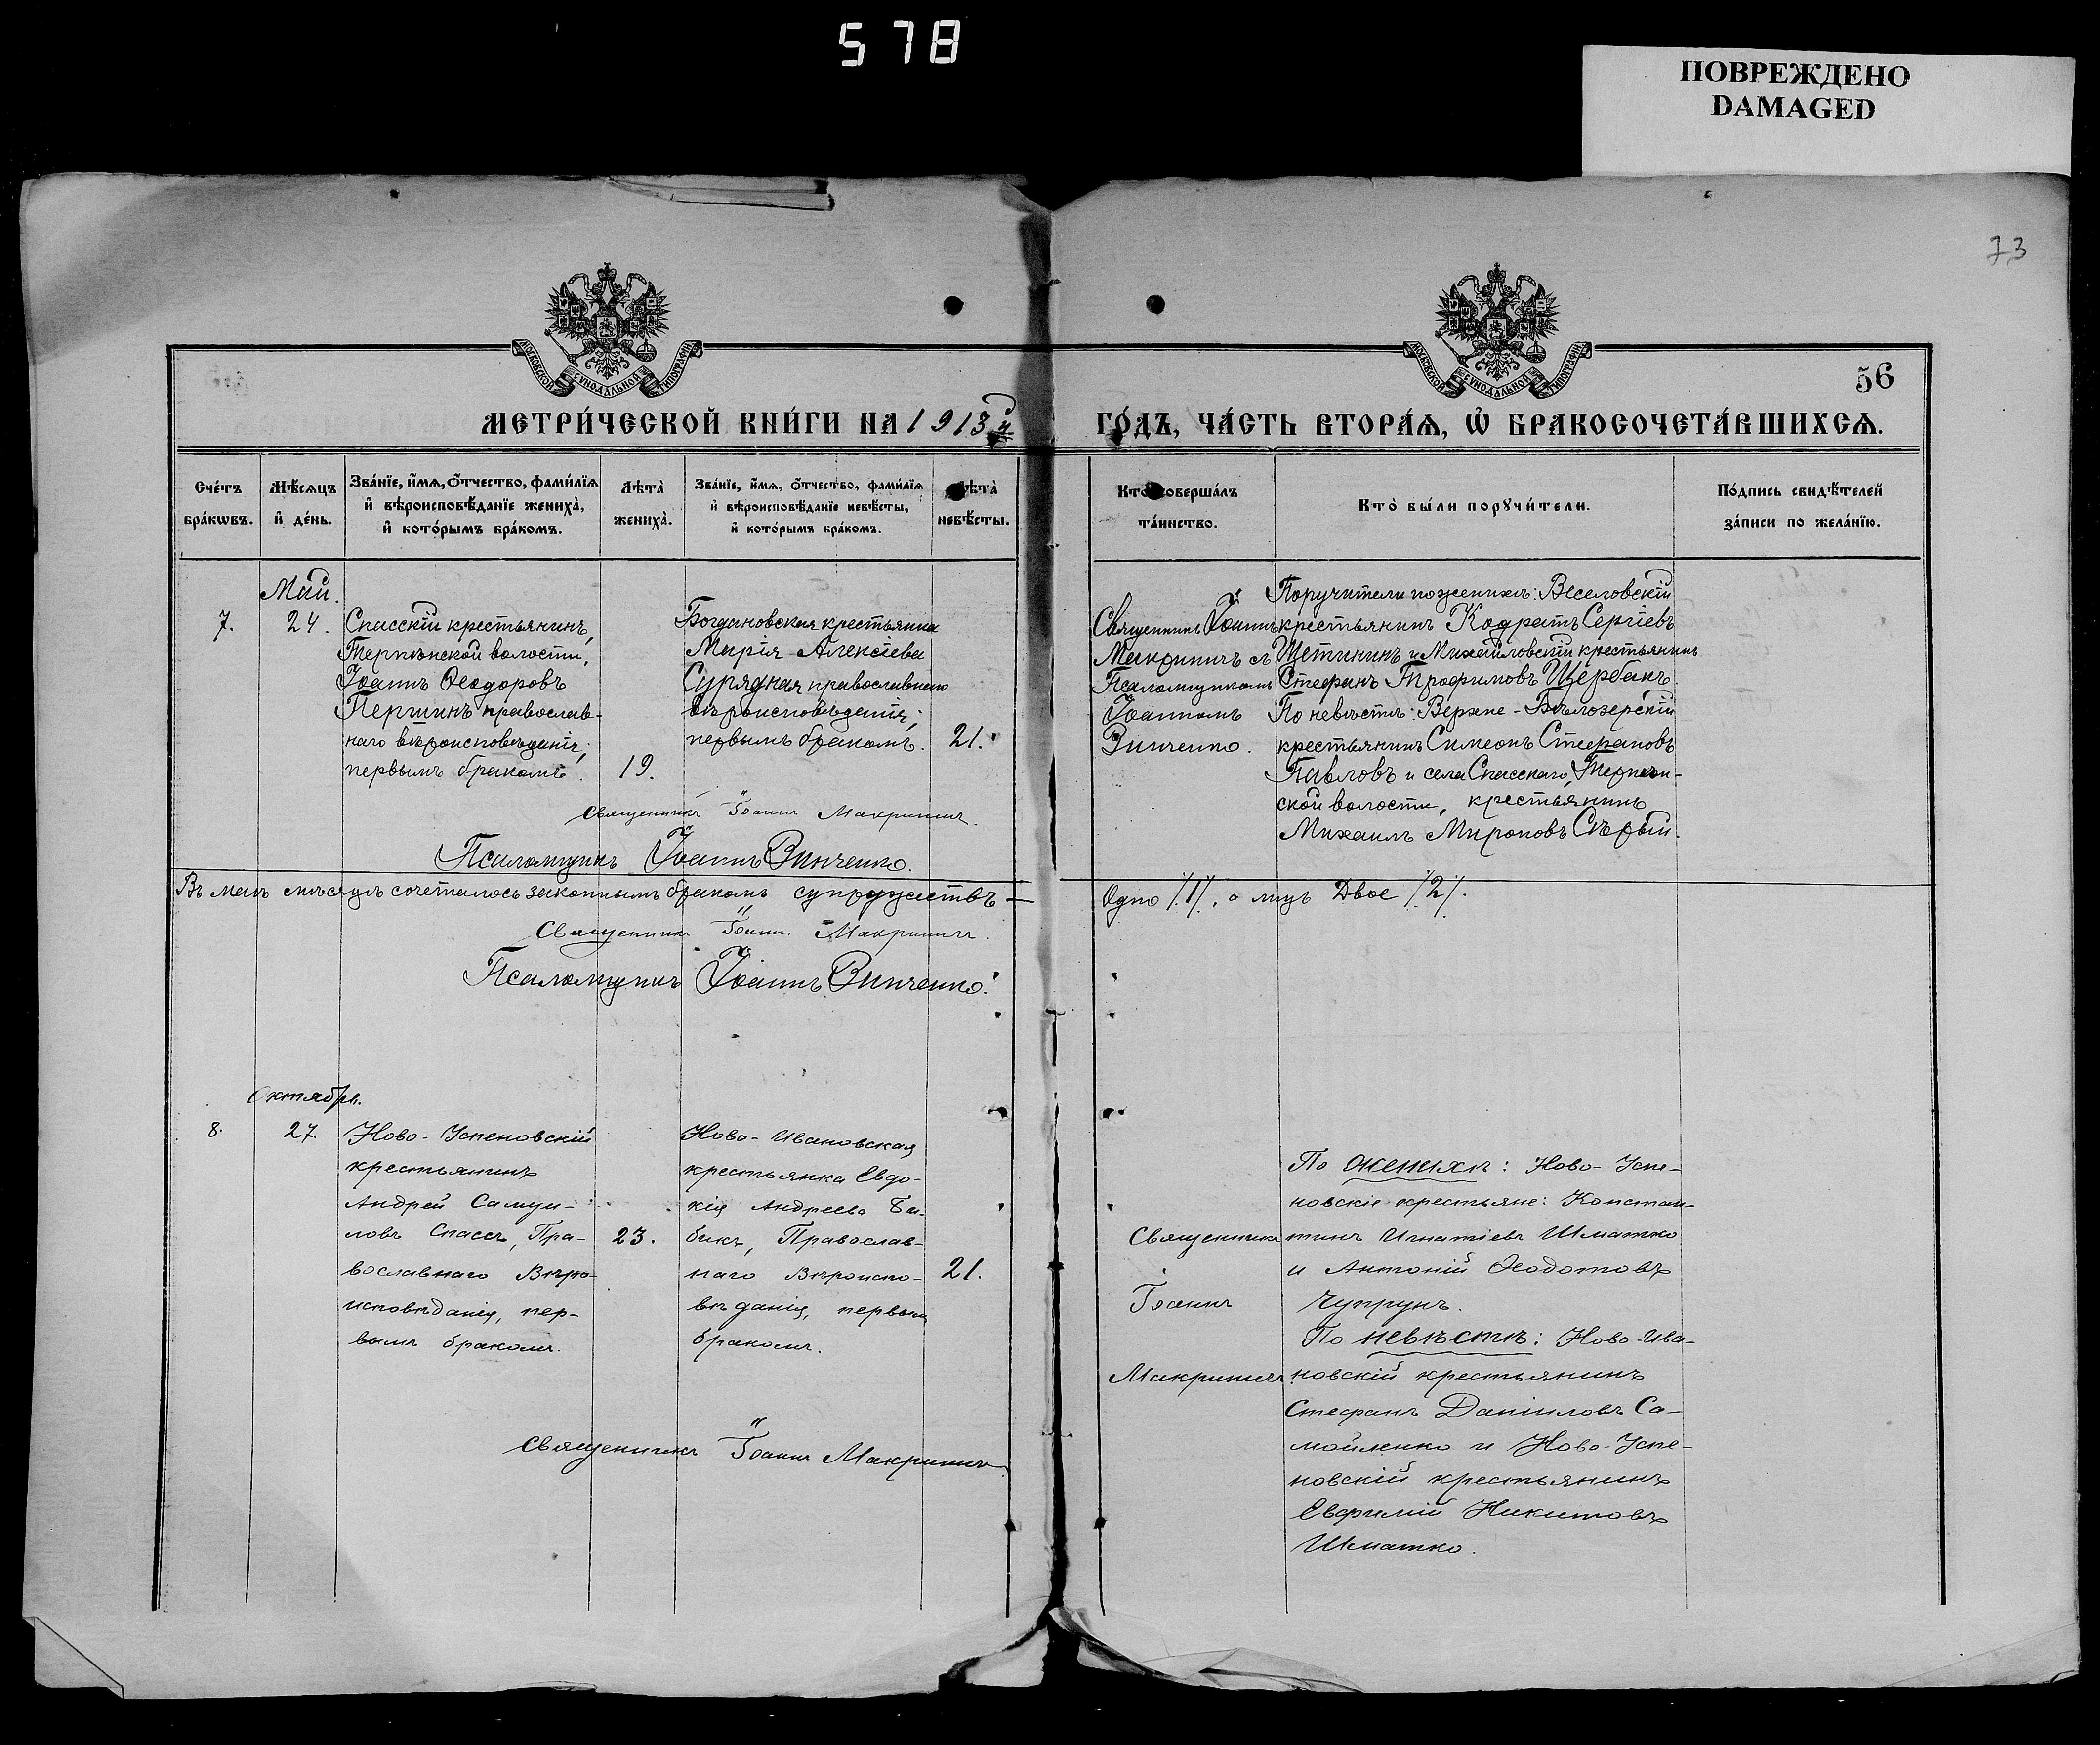 578
ПОВРЕЖДЕНО
DAMAGED
73
МОСКОВСКОЙ СУНОДАЛЬНОЙ ТИПОГРАФІИ
МОСКОВСКОЙ СУНОДАЛЬНОЙ ТИПОГРАФІИ
56
МЕТРИ́ЧЕСКОЙ КНИ́ГИ НА 1913й
ГО́ДЪ, ЧА́СТЬ ВТОРА́Я, Ѿ БРАКОСОЧЕТА́ВШИХСЯ.
Сче́тъ
бра́кωвъ.
Мѣ́сяцъ
и҆ де́нь.
Зва́нїе, и҆́мя, ѻ҆́тчество, фами́лїя
и҆ вѣроисповѣ́данїе жениха̀,
и҆ кото́рымъ бра́комъ.
Лѣта̀
жениха̀.
Зва́нїе, и҆́мя, ѻ҆́тчество, фами́лїя
и҆ вѣроисповѣ́данїе невѣ́сты,
и҆ кото́рымъ бра́комъ.
Лѣта̀
невѣ́сты.
Кто̀ соверша́лъ
та́инство.
Кто̀ бы́ли порꙋчи́тели.
По́дпись свидѣ́телей
за́писи по жела́нїю.
Май.
7.
24.
Спасскій крестьянинъ,
Терпѣнской волости,
Іоаннъ Ѳеодоровъ
Першинъ православ-
наго вѣроисповѣданія;
первымъ бракомъ.
19.
Богдановская крестьянка
Марія Алексіева
Сурядная православнаго
вѣроисповѣданія;
первымъ бракомъ.
21.
Священникъ Іоаннъ
Макриничъ съ
Псаломщикомъ
Іоанномъ
Зинченко.
Поручители по женихѣ: Веселовскій
крестьянинъ Кодратъ Сергіевъ
Щетининъ и Михайловскій крестьянинъ
Стефанъ Трофимовъ Щербакъ.
По невѣстѣ: Верхне-Бѣлозерскій
крестьянинъ Симеонъ Стефановъ
Павловъ и села Спасскаго, Терпѣн-
ской волости, крестьянинъ
Михаилъ Мироновъ Сѣрый.
Священникъ Іоаннъ Макриничъ.
Псаломщикъ Іоаннъ Зинченко.
Въ маѣ мѣсяцѣ сочеталось законнымъ бракомъ супружествъ —
Одно /.1/., а лицъ Двое /.2/.
Священникъ Іоаннъ Макриничъ.
Псаломщикъ Іоаннъ Зинченко.
Октябрь.
8.
27.
Ново-Успеновскій
крестьянинъ
Андрей Самуи-
ловъ Спасъ, Пра-
вославнаго Вѣро-
исповѣданія, пер-
вымъ бракомъ.
23.
Ново-Ивановская
крестьянка Евдо-
кія Андреева Би-
бикъ, Православ-
наго Вѣроиспо-
вѣданія, первымъ
бракомъ.
21.
Священникъ
Іоаннъ
Макриничъ
По женихѣ: Ново-Успе-
новскіе крестьяне: Констан-
тинъ Игнатіевъ Шматко
и Антоній Ѳеодотовъ
Чупрунъ.
По невѣстѣ: Ново-Ива-
новскій крестьянинъ
Стефанъ Даніиловъ Са-
мойленко и Ново-Успе-
новскій крестьянинъ
Евфимій Никитовъ
Шматко.
Священникъ Іоаннъ Макриничъ